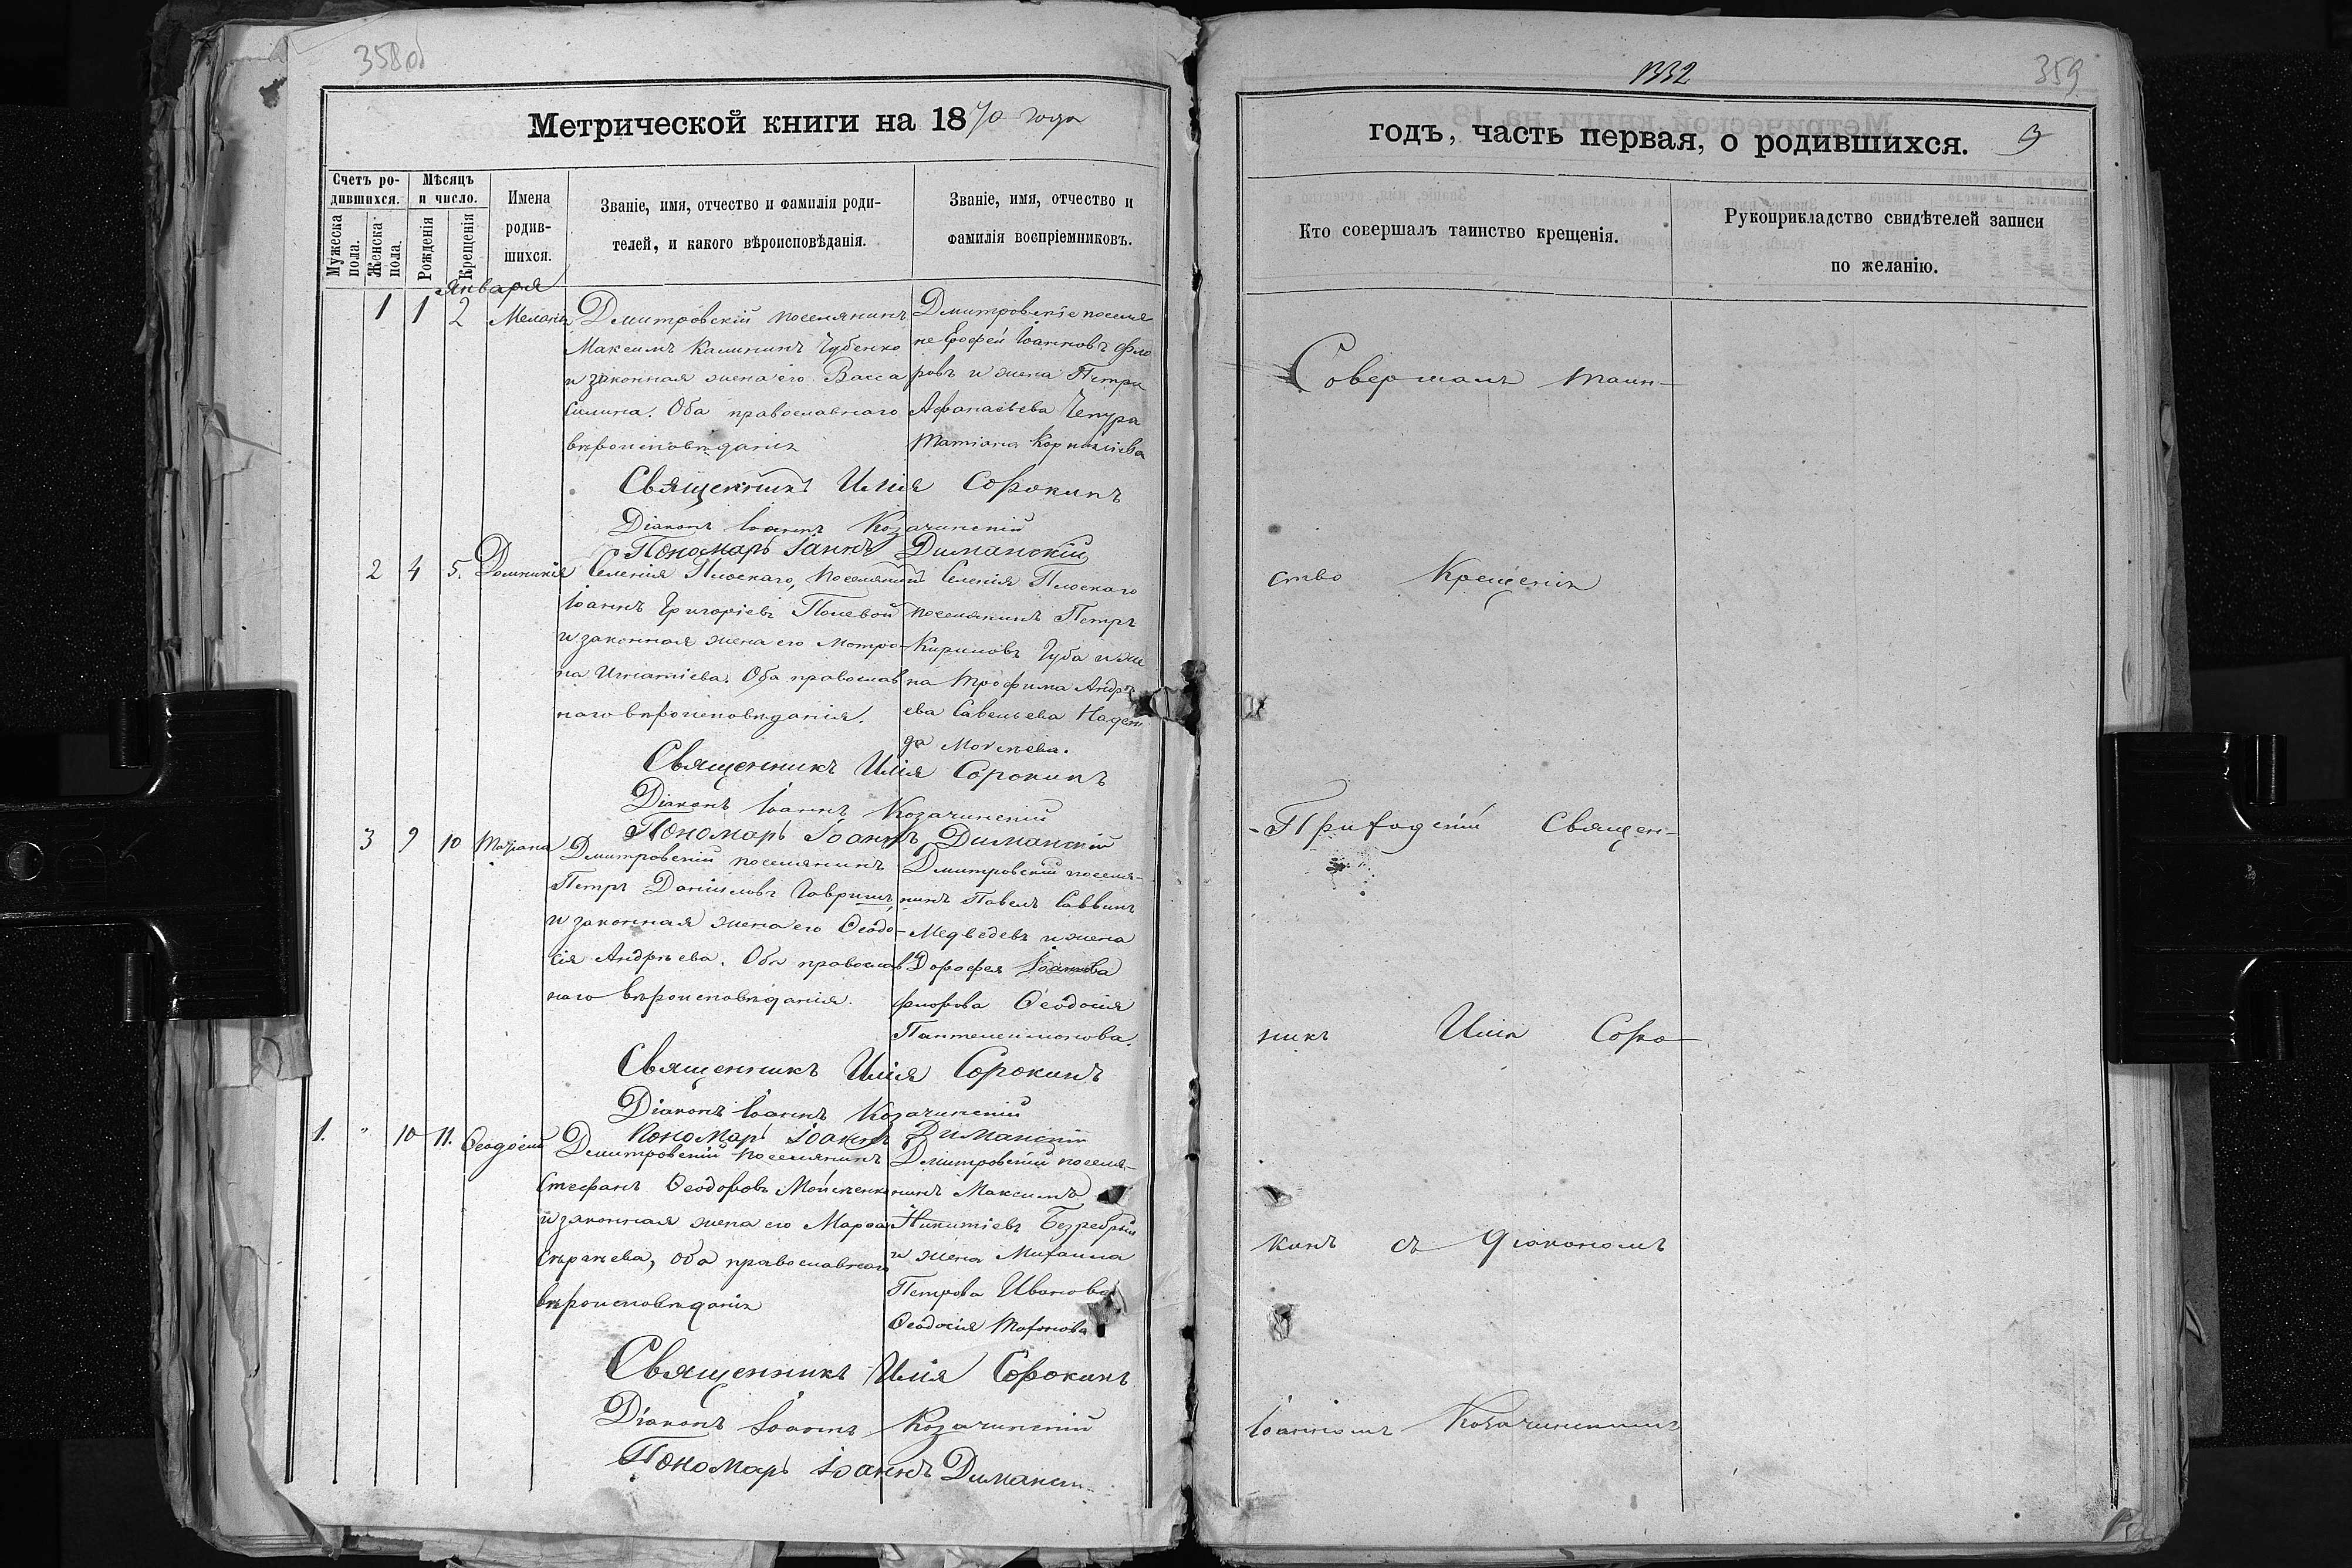 358об
Метрической книги на 1870 года
Счетъ ро-
дившихся.
Мужеска
пола.
Женска
пола.
Мѣсяцъ
и число.
Рожденія
Крещенія
Имена
родив-
шихся.
Званіе, имя, отчество и фамилія роди-
телей, и какого вѣроисповѣданія.
Званіе, имя, отчество и
фамилія воспріемниковъ.
Января
1 1 2
Мелан
Дмитровскій поселянинъ
Максимъ Калининъ Чубенко
и законная жена его Васса
Силина. Оба православнаго
вѣроисповѣданія
Дмитровскіе поселя
не Ерофей Іоанновъ Фло
ровъ и жена Петра
Афанасьева Чепура
Татіана Корниліева
Священникъ Илія Сорокинъ
Діаконъ Іоаннъ Козачинскій
Пономарь Іоаннъ Диманскій
2 4 5. Домникія
Селенія Плоскаго, поселянинъ
Іоаннъ Григоріевъ Полевой
и законная жена его Матро
на Игнатіева. Оба православ
наго вѣроисповѣданія.
Селенія Плоскаго
поселянинъ Петръ
Кириловъ Губа и же
на Трофима Андрѣ
ева Савельева Надеж
да Моисеева.
Священникъ Илія Сорокинъ
Діаконъ Іоаннъ Козачинскій
Пономарь Іоаннъ Диманскій
3 9 10 Татіана
Дмитровскій поселянинъ
Петръ Даніиловъ Гавришъ
и законная жена его Ѳеодо-
сія Андрѣева. Оба православ
наго вѣроисповѣданія.
Дмитровскій поселя-
нинъ Павелъ Саввинъ
Медведевъ и жена
Дорофея Іоаннова
Флорова Ѳеодосія
Пантелеимонова.
Священникъ Илія Сорокинъ
Діаконъ Іоаннъ Козачинскій
Пономарь Іоаннъ Диманскій
1. " 10 11. Ѳеодосій
Дмитровскій поселянинъ
Стефанъ Ѳеодоровъ Мойсеенко
и законная жена его Марѳа
Сергѣева, оба православнаго
вѣроисповѣданія
Дмитровскій поселя-
нинъ Максимъ
Никитіевъ Безребрый
и жена Михаила
Петрова Иванова
Ѳеодосія
Священникъ Илія Сорокинъ
Діаконъ Іоаннъ Козачинскій
Пономарь Іоаннъ Диманск
1332
359
годъ, часть первая, о родившихся. 9
Кто совершалъ таинство крещенія.
Рукоприкладство свидѣтелей записи
по желанію.
Совершалъ таин-
ство Крещенія
Приходскій Священ-
никъ Илія Соро
кинъ съ діакономъ
Іоанномъ Козачинскимъ